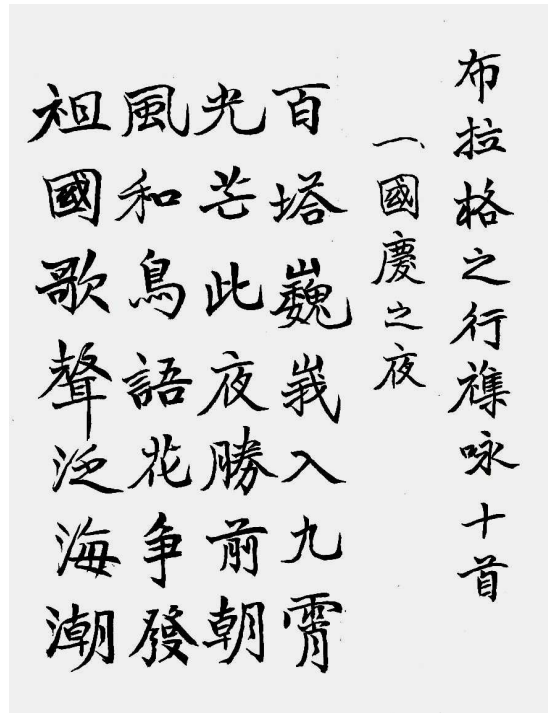 布拉格之行雜咏十首
一、國慶之夜
百塔巍峩入九霄
光芒此夜勝前朝
風和鳥語花爭發
祖國歌聲泛海潮